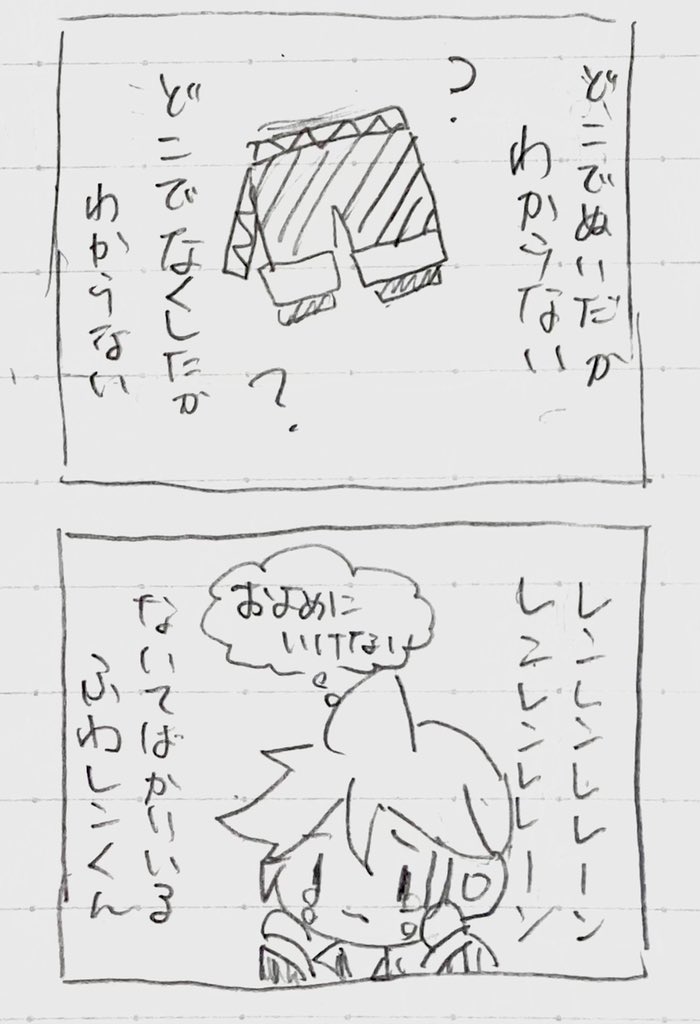 どこでぬいだか
わからない
?
?
どこでなくしたか
わからない
レンレンレレーン
レンレンレレーン
およめに
いけない
ないてばかりいる
ふわレンくん